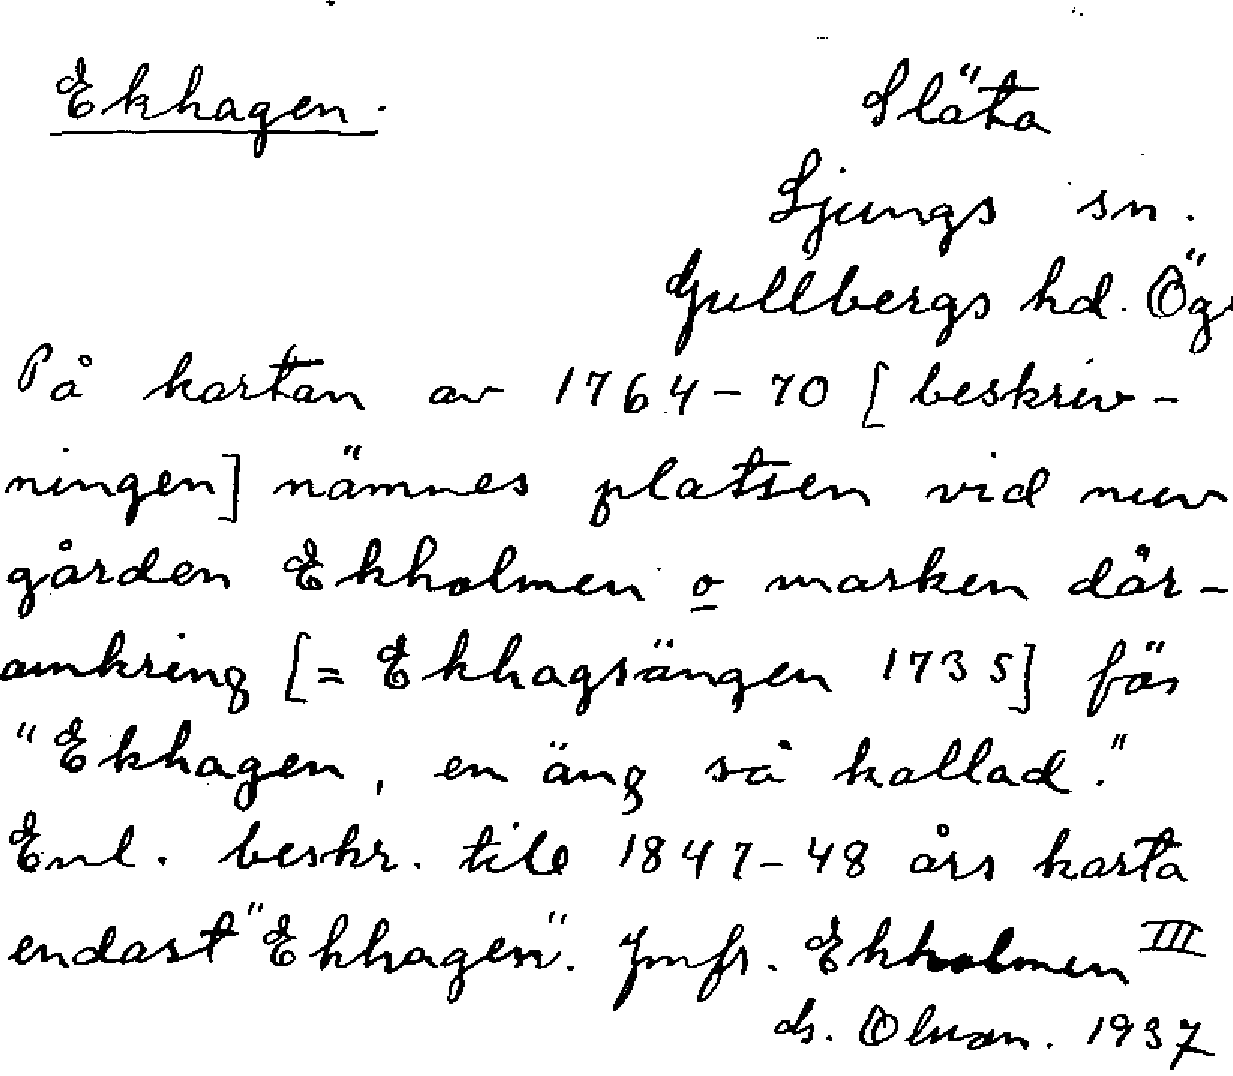 Ekhagen.
Släta
Ljungs sn.
Gullbergs hd. Ög.
På kartan av 1764-70 [beskriv-
ningen] nämnes platsen vid nuv
gården Ekholmen o marken där-
omkring [= Ekhagsängen 1735] för
"Ekhagen, en äng så kallad."
Enl. beskr. till 1847-48 års karta
endast "Ekhagen". Jmfr. Ekholmen III
1937